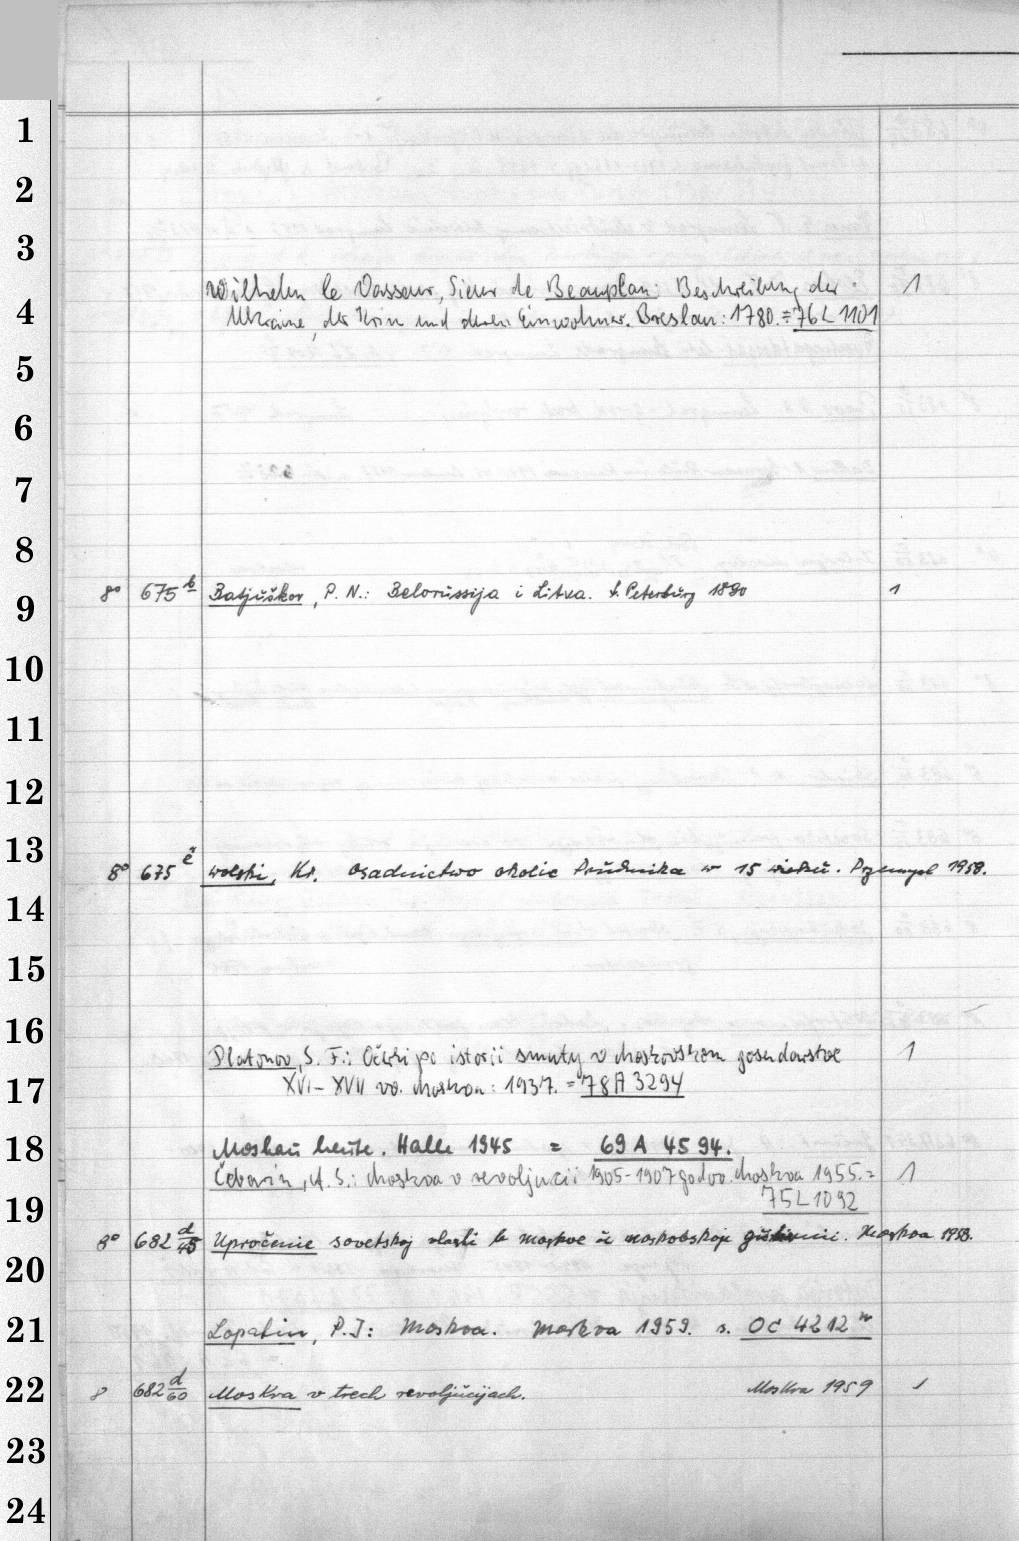 1
2
3
Wilhelm le Vasseur, Sieur de Beauplan: Beschreibung der 1
4 Ukraine, der Krim und deren Einwohner. Breslau: 1780. = 76 L 1101
5
6
7
8
9 8° 675 b Batjuškov, P. N.: Belorussija i Litva. S. Peterburg 1890 1
10
11
12
13 8° 675 e Wolski, Kr. Osadnictwo okolic Prudnika w 15 wieku. Przemysl 1958.
14
15
16
Platonov, S. F.: Očerki po istorii smuty v Moskovskom gosudarstve 1
17 XVI-XVII vv. Moskva: 1937. = 78 A 3294
18 Moskau heute. Halle 1945 = 69 A 4594.
, A. S.: Moskva v revoljucii 1905-1907 godov. Moskva 1955. = 1
19 75 L 1092
8° 682 d/45 Upročenie sovetskoj vlasti v Moskve i Moskovskoj gubernii. Moskva 1958.
20
21 Lopatin, P. I: Moskva. Moskva 1959. s. Oc 4212 n
22 8 682 d/60 Moskva v trech revoljucijach. Moskva 1959 1
23
24